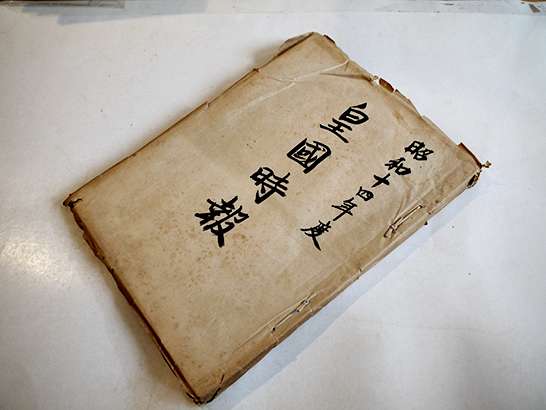 昭和十四年度
皇國時報